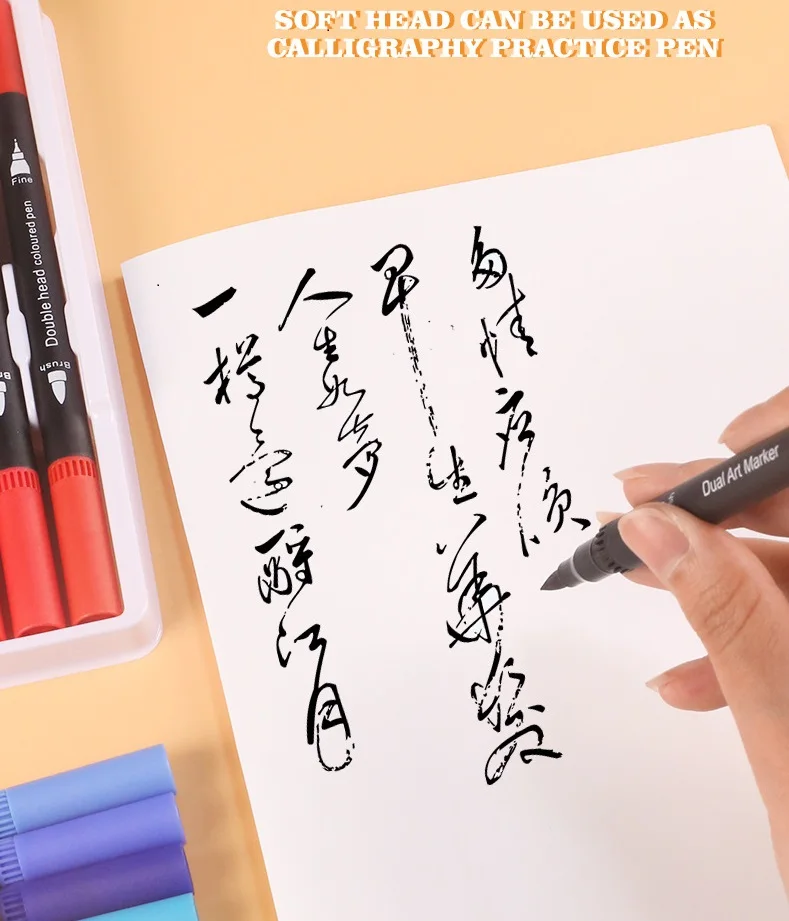 SOFT HEAD CAN BE USED AS
CALLIGRAPHY PRACTICE PEN
多情应须
早生華髮
人生如夢
一樽還酹江月
Fine
Double head coloured pen
Brush
Dual Art Marker